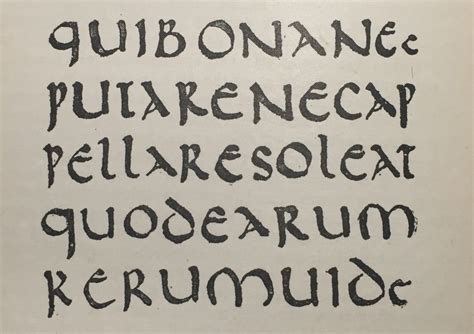 QUIBONANEC
PUTARENECAP
PELLARESOLEAT
QUODEARUM
RERUMUIDC